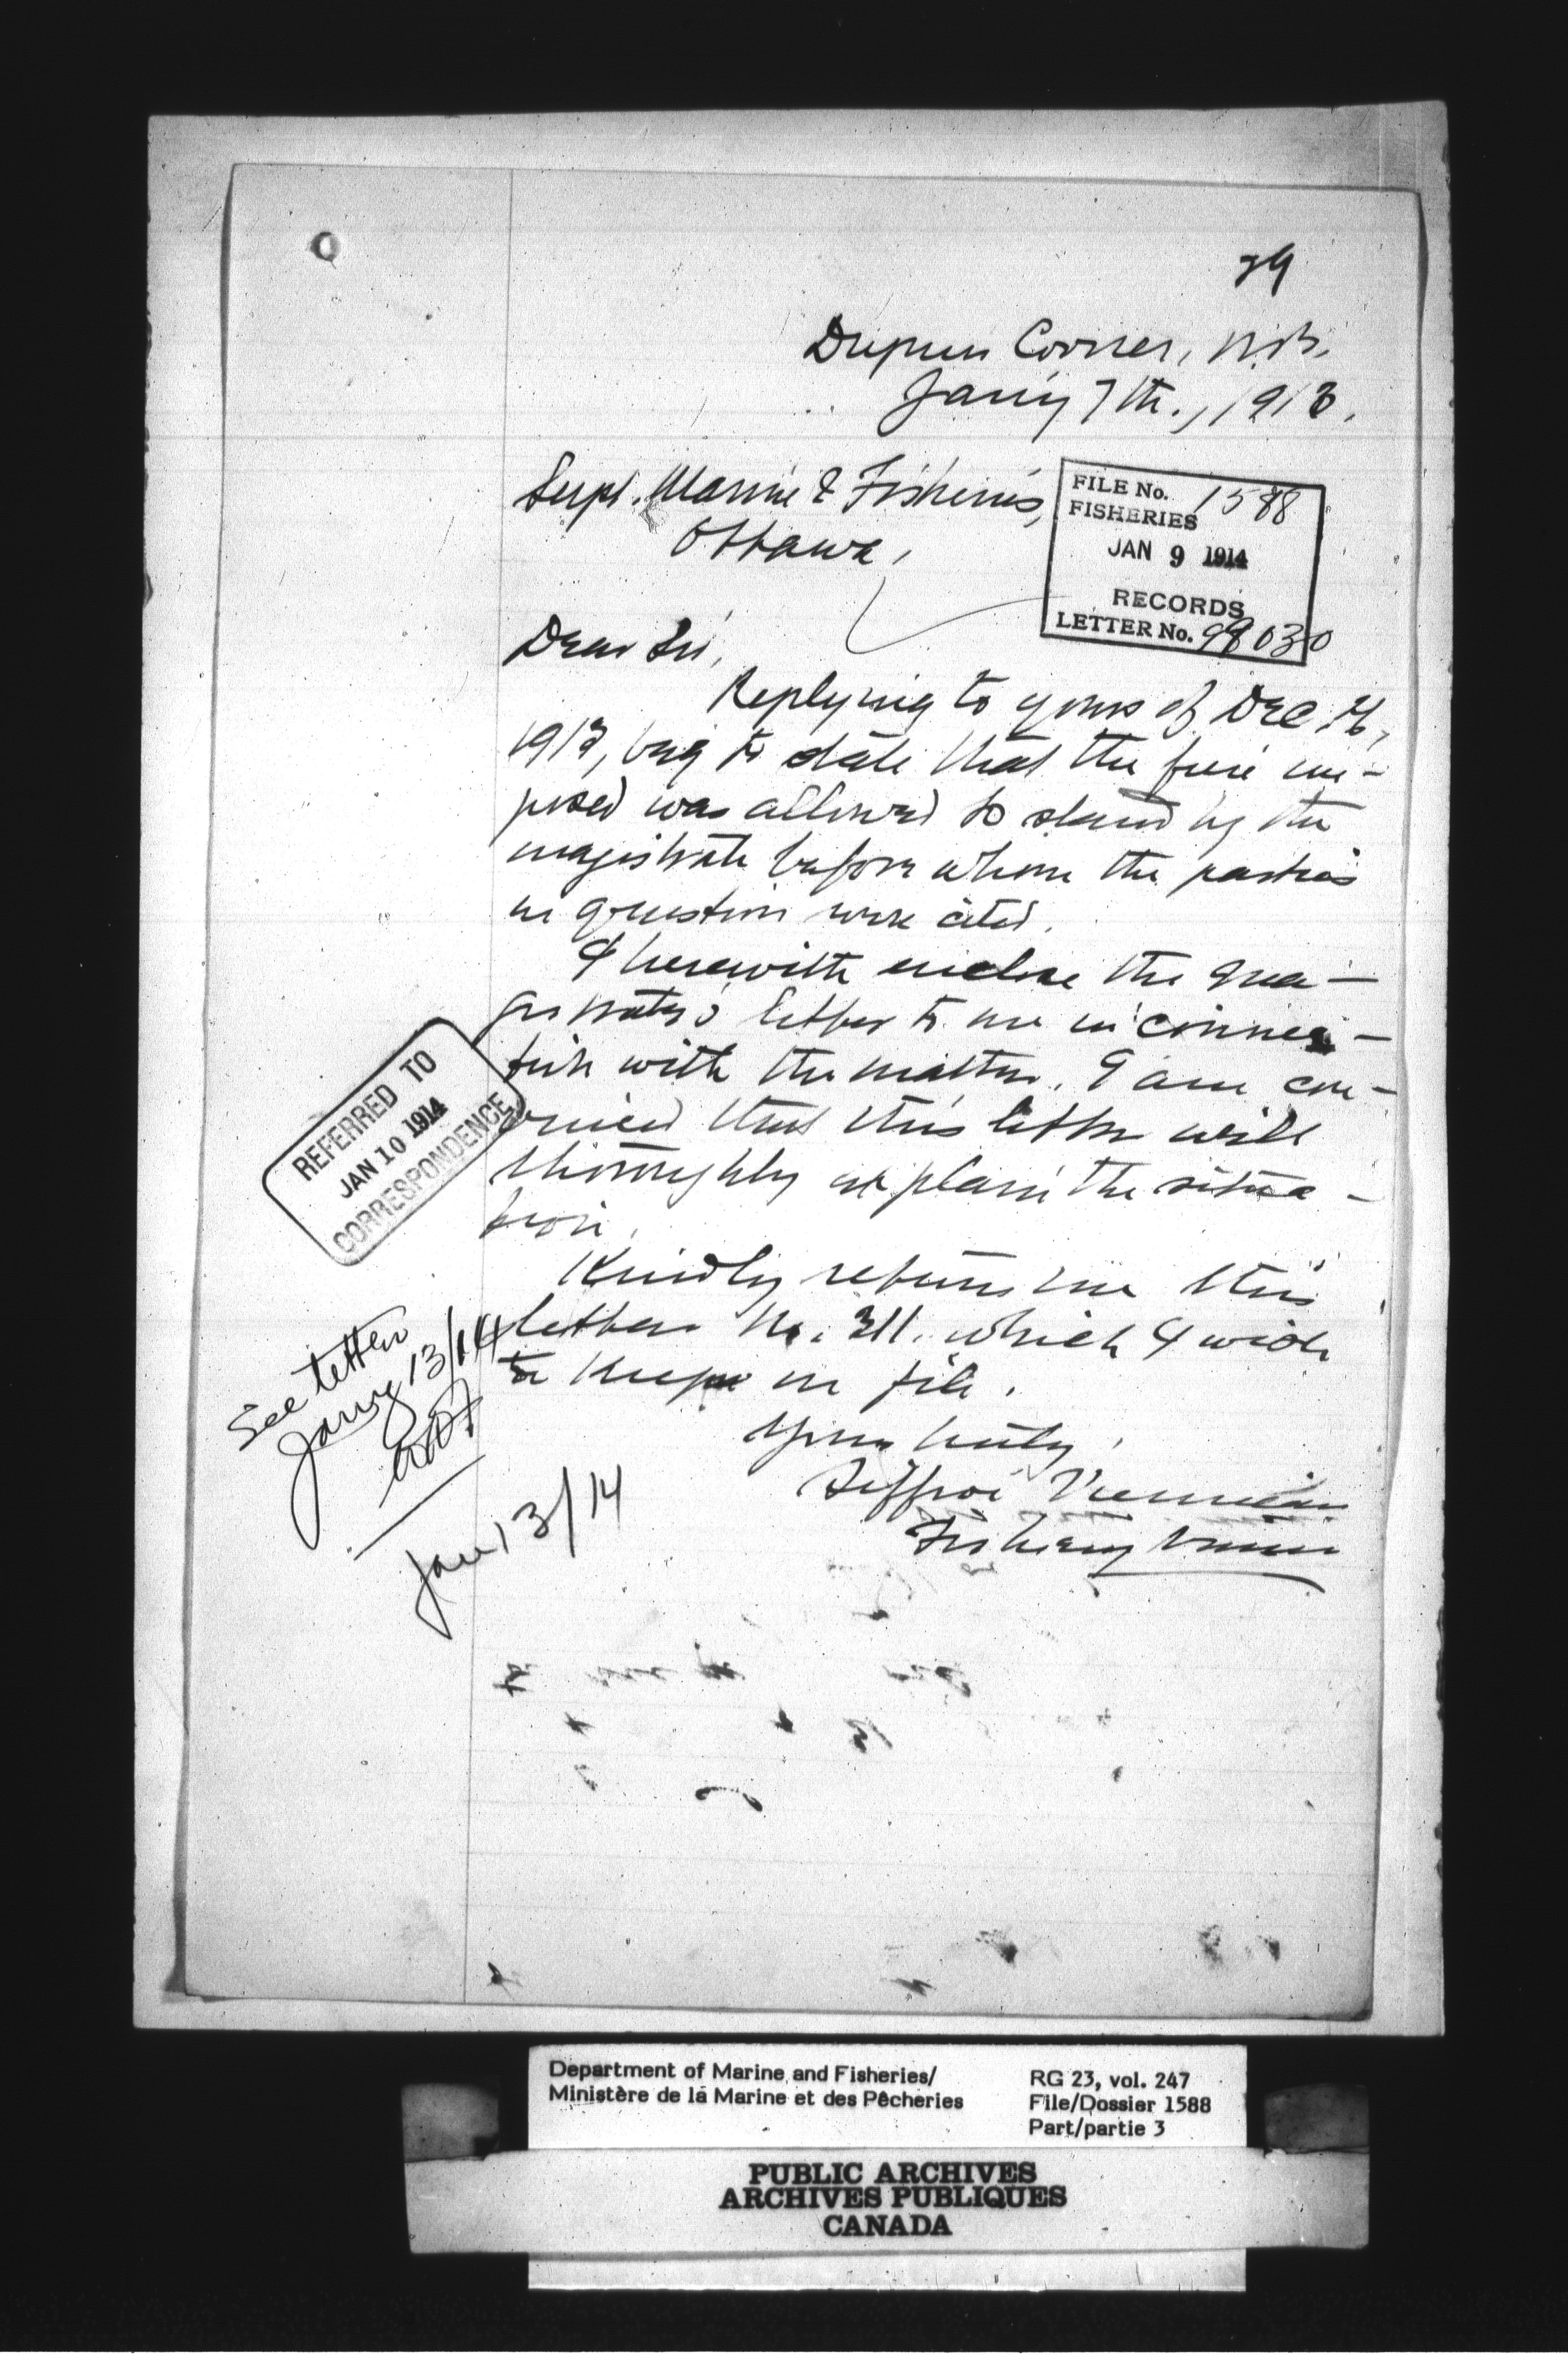 29
Dupuis Corner, N.B.
Jan'y 7th., 1913.
Supt. Marine & Fisheries,
Ottawa,
FILE No. 1588
FISHERIES
JAN 9 1914
RECORDS
LETTER No. 99030
Dear Sir,
Replying to yours of Dec.
1913, beg to state that the fine im-
posed was allowed to stand by the
magistrate before whom the parties
in question were cited.
I herewith enclose the ma-
gistrate's letter to me in connec-
tion with the matter. I am con-
vinced that this letter will
thoroughly explain the situa-
tion.
Kindly return me this
letter No. 311. which I wish
to keep on file.
Yours truly,
Siffroi Vienneau
Fishery
REFERRED TO
JAN 10 1914
CORRESPONDENCE
See letter
Jany 13/14
Jan 13/14
Department of Marine and Fisheries/
Ministère de la Marine et des Pêcheries
RG 23, vol. 247
File/Dossier 1588
Part/partie 3
PUBLIC ARCHIVES
ARCHIVES PUBLIQUES
CANADA